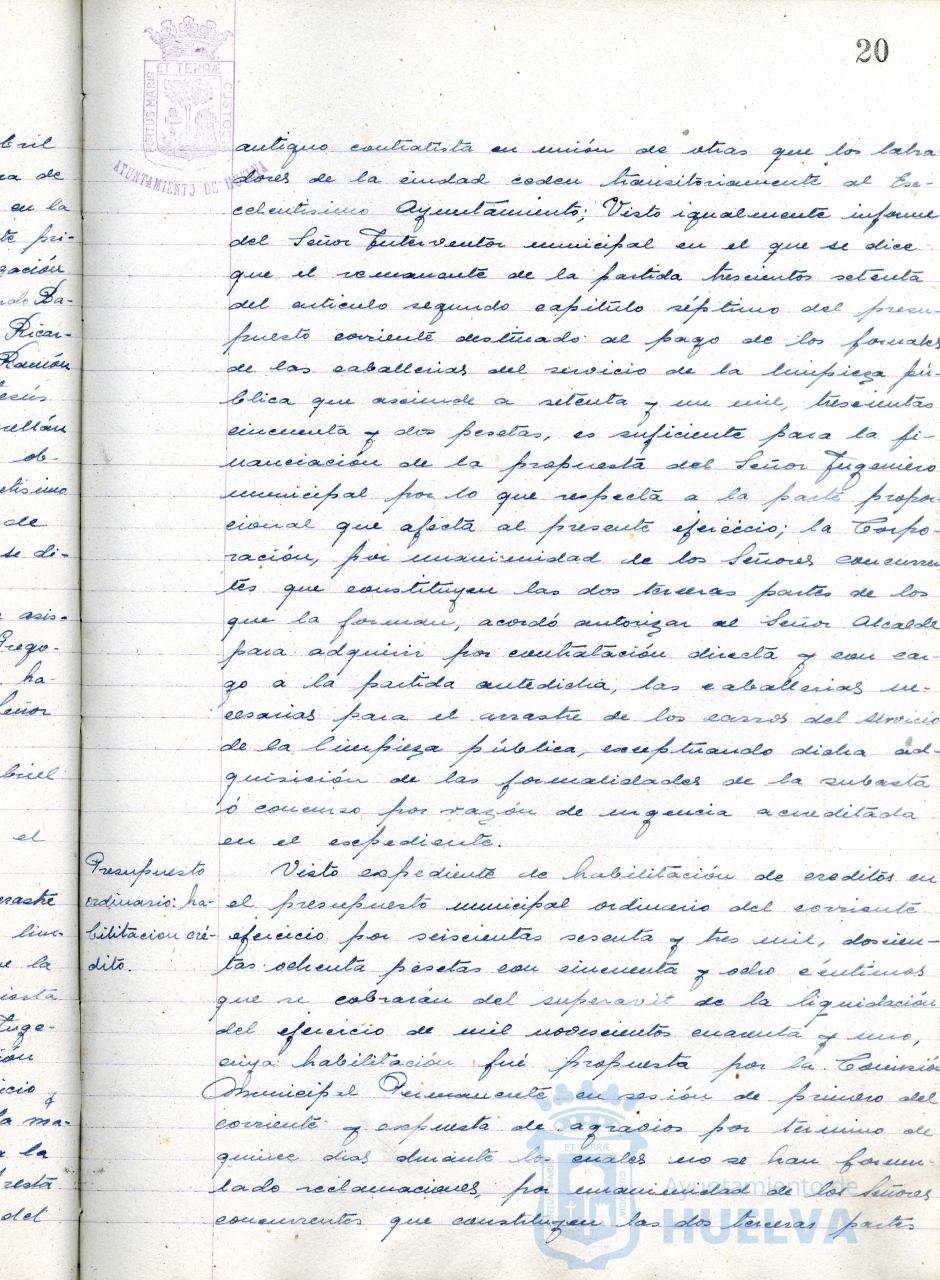 20
PORTUS MARIS ET TERRÆ CUSTODIA
AYUNTAMIENTO DE HUELVA
antiguo contratista en unión de otras que los labra-
dores de la ciudad ceden transitoriamente al Ex-
celentisimo Ayuntamiento; Visto igualmente informe
del Señor Interventor municipal en el que se dice
que el remanente de la partida trescientos setenta
del articulo segundo capitulo séptimo del presu-
puesto corriente destinado al pago de los jornales
de las caballerias del servicio de la limpieza pú-
blica que asciende a setenta y un mil, trescientas
cincuenta y dos pesetas, es suficiente para la fi-
nanciación de la propuesta del Señor Ingeniero
municipal por lo que respecta a la parte propor-
cional que afecta al presente ejercicio; la Corpo-
ración, por unanimidad de los Señores concurren
tes que constituyen las dos terceras partes de los
que la forman, acordó autorizar al Señor Alcalde
para adquirir por contratación directa y con car-
go a la partida antedicha, las caballerias ne-
cesarias para el arrastre de los carros del servicio
de la limpieza pública, exceptuando dicha ad-
quisición de las formalidades de la subasta
ó concurso por razón de urgencia acreditada
en el expediente.
Presupuesto
ordinario: ha-
bilitacion cré-
dito.
Visto expediente de habilitación de creditos en
el presupuesto municipal ordinario del corriente
ejercicio por seiscientas sesenta y tres mil, doscien-
tas ochenta pesetas con cincuenta y ocho céntimos
que se cobrarán del superavit de la liquidación
del ejercicio de mil novescientos cuarenta y uno,
cuya habilitación fué propuesta por la Comisión
Municipal Permanente en sesión de primero del
corriente y expuesta de agravios por termino de
quince dias durante los cuales no se han formu-
lado reclamaciones, por unanimidad de los Señores
concurrentes que constituyen las dos terceras partes
Ayuntamiento de
HUELVA